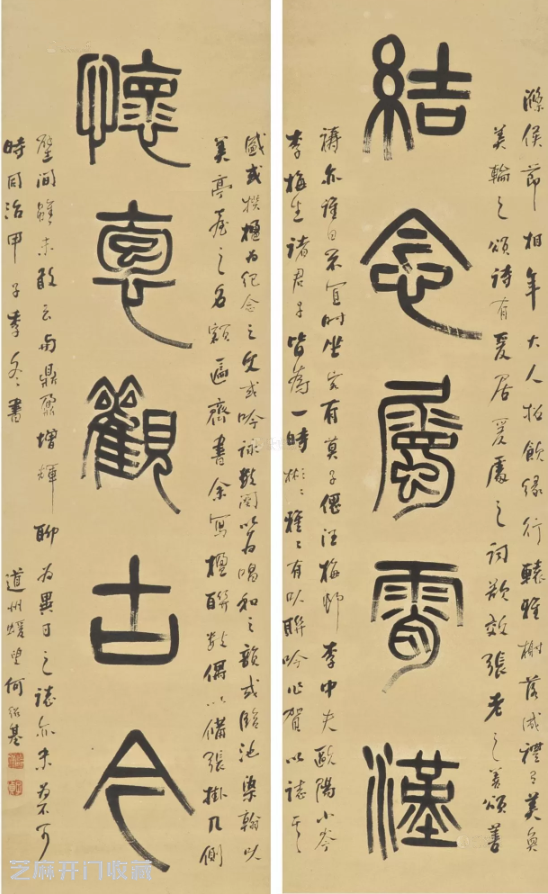 結念屬霄漢
滌侯節相年大人招飲緣行轅雅榭落成禮有美奐
美輪之頌詩有爰居爰處之詞敬效張老之善頌善
禱亦謹曰不宜時坐客有莫子偲汪梅邨李中夫歐陽小岑
李梅生諸君子皆為一時彬彬雅雅有以聯吟賀以誌其
懷袌觀古今
盛或撰楹為紀念之先或吟詠數闋以為唱和之韻或臨池染翰以
美亭之名額齋書余寫楹聯數偶以備張掛几側
壁間雖未敢云與鼎彝增輝聊為異日之誌亦未為不可
時同治甲子季冬書
道州蝯叟何紹基
芝麻开门收藏